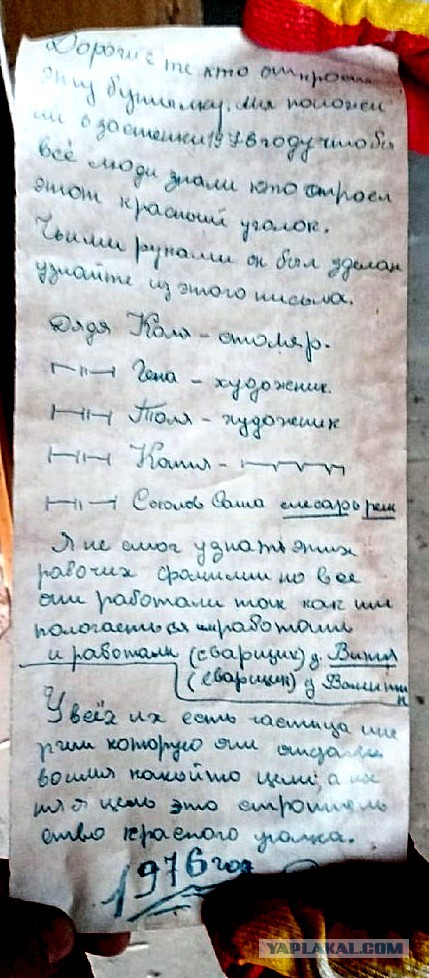 Дорогие те кто откроет
эту бутылку. Мы положи
ли в застенки 1976 году чтобы
всё люди знали кто строел
этот красный уголок.
Чьими руками он был зделан
узнайте из этого письма.
Дядя Коля - столяр.
—||— Гена - художник.
—||— Толя - художник
—||— Катя -
—||— Соколов Саша слесарь рем
Я не смог узнать этих
рабочих фамилии но все
они работали так как им
пологаеться работать
и работали (сварщик) д. Витя
(сварщик) д Валенти
н
У всех их есть частица эне
ргии которую они отдали
воимя какойто цели, а их
цель это строитель
ство красного уголка.
1976 год
YAPLAKAL.COM